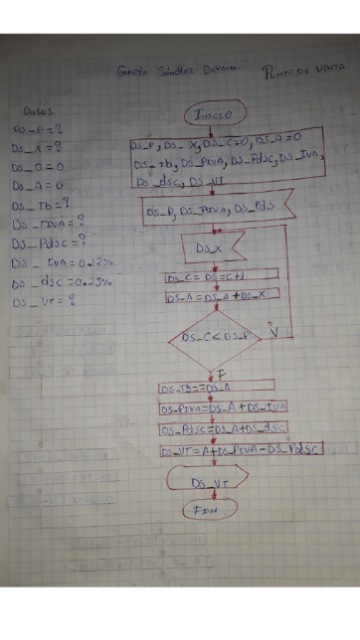 Sánchez
Punto de venta
Datos.
DS_P=?
DS_X=?
DS_O=0
DS_A=0
DS_Tb=?
DS_PIVA=?
DS_Pdsc=?
DS_IVA=0.12%
DS_dsc=0.25%
DS_VT=?
Inicio
DS_P, DS_X, DS_C=0, DS_A=0
DS_Tb, DS_PIVA, DS_Pdsc, DS_IVA,
DS_dsc, DS_VT
DS_P, DS_PIVA, DS_Pds
DS_X
DS_C=DS=C+1
DS_A=DS_A+DS_X
DS_C<DS_P
V
F
DS_Tb==DS_A
DS_PIVA=DS_A+DS_IVA
DS_Pdsc=DS_A+DS_dsc
DS_VT=A+DS_PIVA-DS_Pdsc
DS_VT
FIN